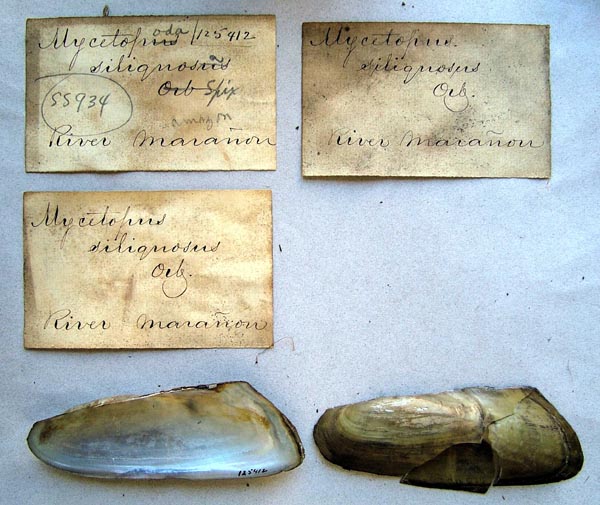 Mycetopus oda /125412
silignosus a
Orb Spix
SS934
amazon
River Marañon
Mycetopus
silignosus
Orb.
River Marañon
Mycetopus
silignosus
Orb.
River Marañon
125412